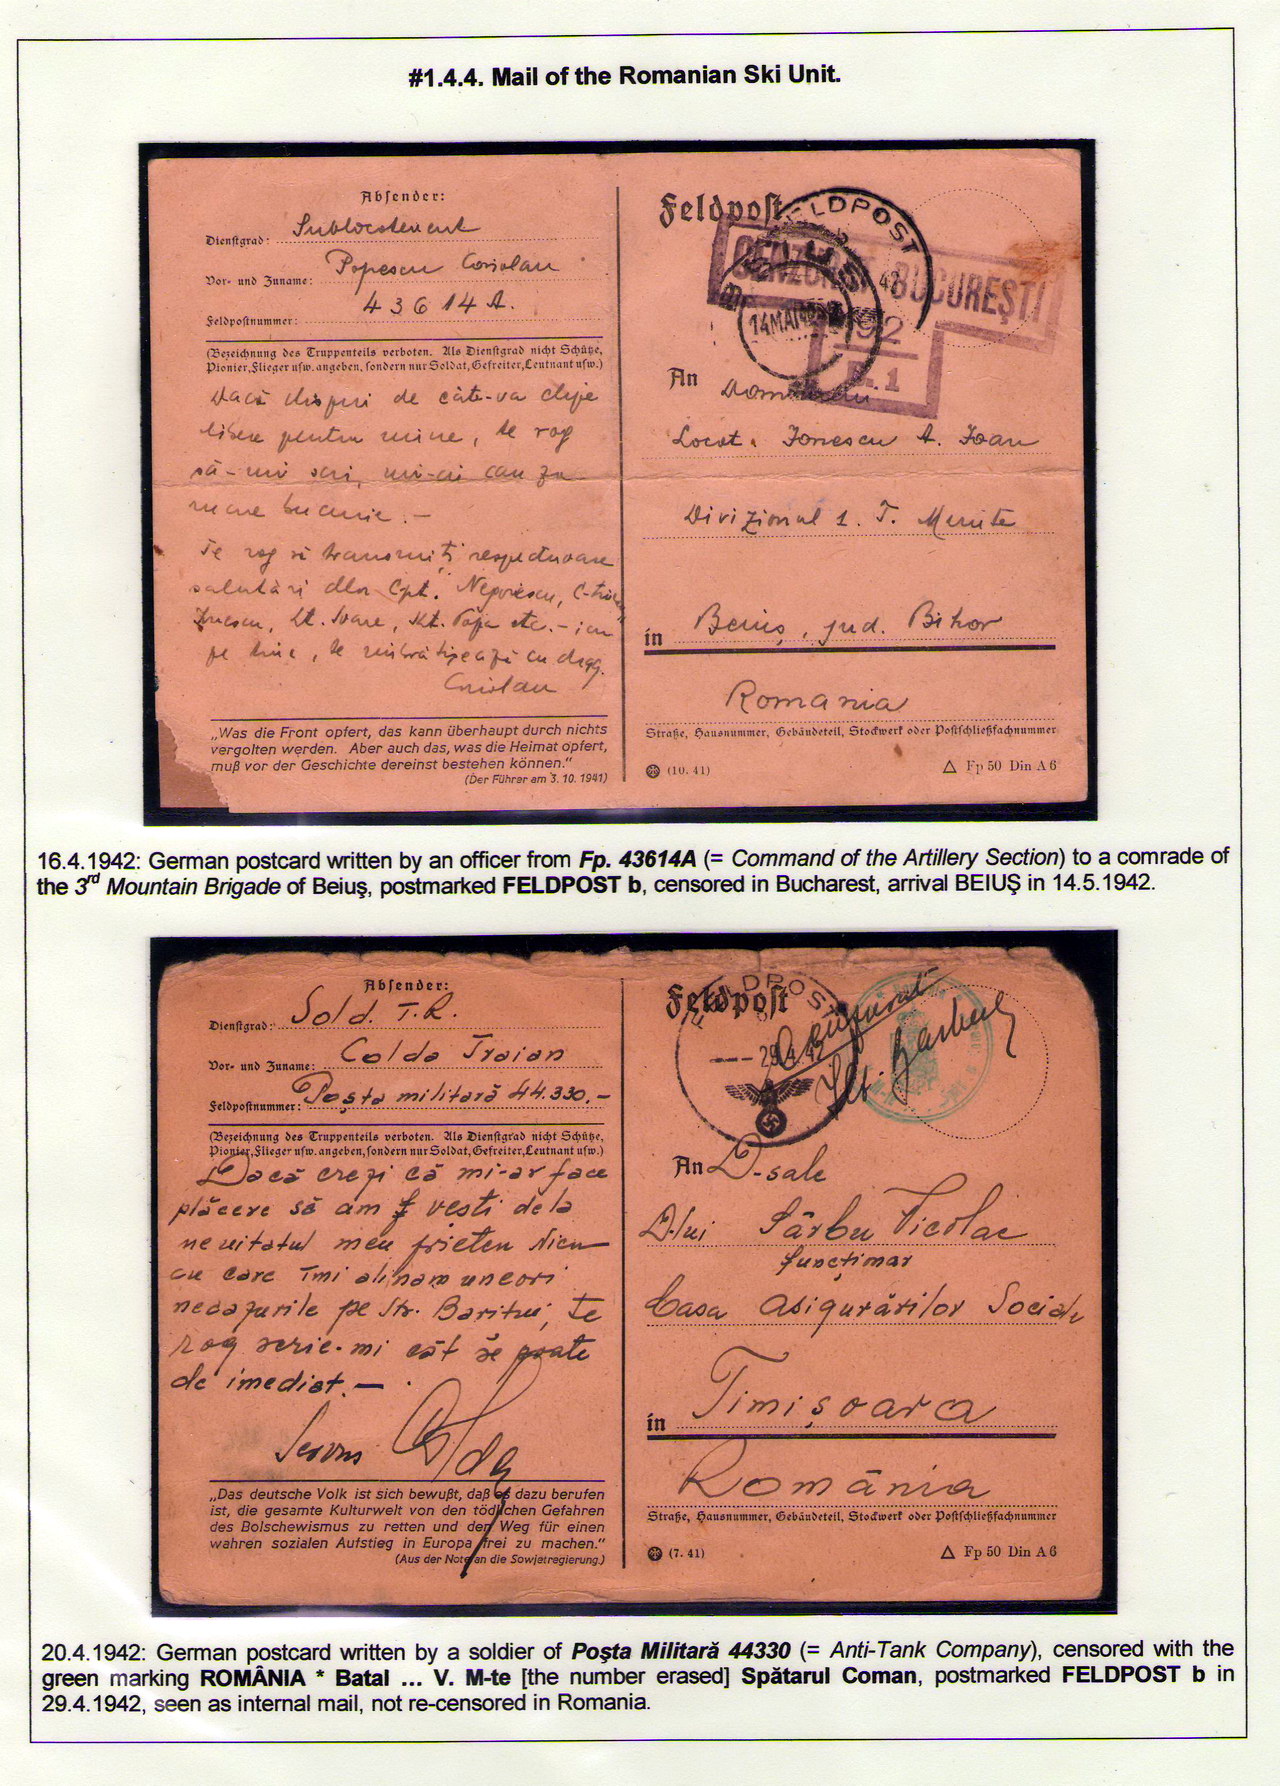 #1.4.4. Mail of the Romanian Ski Unit.
Absender:
Dienstgrad: Sublocotenent
Vor- und Zuname: Popescu Coriolan
Feldpostnummer: 43614 A.
(Bezeichnung des Truppenteils verboten. Als Dienstgrad nicht Schütze,
Pionier, Flieger usw. angeben, sondern nur Soldat, Gefreiter, Leutnant usw.)
Dacă dispui de câte-va clipe
libere pentru mine, te rog
să-mi scri, mi-ai cauza
mare bucurie. –
Te rog să transmiți respectuoase
salutări dlor Cpt.
Lt. Soare, Slt. Popa etc. – iar
pe tine, te îmbrățișează cu drag.
Coriolan
„Was die Front opfert, das kann überhaupt durch nichts
vergolten werden. Aber auch das, was die Heimat opfert,
muß vor der Geschichte dereinst bestehen können.“
(Der Führer am 3. 10. 1941)
Feldpost
FELDPOST
b
42
CENZURAT BUCUREȘTI
BEIUȘ
14 MAI 942
92
B. 1
An Domnului
Locot. Ionescu A. Ioan
Divizionul 1. T. Munte
in Beiuș, jud. Bihor
Romania
Straße, Hausnummer, Gebäudeteil, Stockwerk oder Postschließfachnummer
(10. 41)
△ Fp 50 Din A 6
16.4.1942: German postcard written by an officer from Fp. 43614A (= Command of the Artillery Section) to a comrade of
the 3rd Mountain Brigade of Beiuș, postmarked FELDPOST b, censored in Bucharest, arrival BEIUȘ in 14.5.1942.
Absender:
Dienstgrad: Sold. T.R.
Vor- und Zuname: Colda Traian
Feldpostnummer: Poșta militară 44.330.–
(Bezeichnung des Truppenteils verboten. Als Dienstgrad nicht Schütze,
Pionier, Flieger usw. angeben, sondern nur Soldat, Gefreiter, Leutnant usw.)
Dacă crezi că mi-ar face
plăcere să am vesti dela
neuitatul meu prieten Nicu
cu care îmi alinam uneori
necazurile pe Str. Baritiu, te
rog scrie-mi cât se poate
de imediat. –
Servus Colda
„Das deutsche Volk ist sich bewußt, daß es dazu berufen
ist, die gesamte Kulturwelt von den tödlichen Gefahren
des Bolschewismus zu retten und den Weg für einen
wahren sozialen Aufstieg in Europa frei zu machen.“
(Aus der Note an die Sowjetregierung.)
Feldpost
FELDPOST
b
29.4.42
Cenzurat
An D-sale
D-lui Sârbu Nicolae
funcționar
Casa Asigurărilor Sociale
in Timișoara
România
Straße, Hausnummer, Gebäudeteil, Stockwerk oder Postschließfachnummer
(7. 41)
△ Fp 50 Din A 6
20.4.1942: German postcard written by a soldier of Poşta Militară 44330 (= Anti-Tank Company), censored with the
green marking ROMÂNIA * Batal ... V. M-te [the number erased] Spătarul Coman, postmarked FELDPOST b in
29.4.1942, seen as internal mail, not re-censored in Romania.